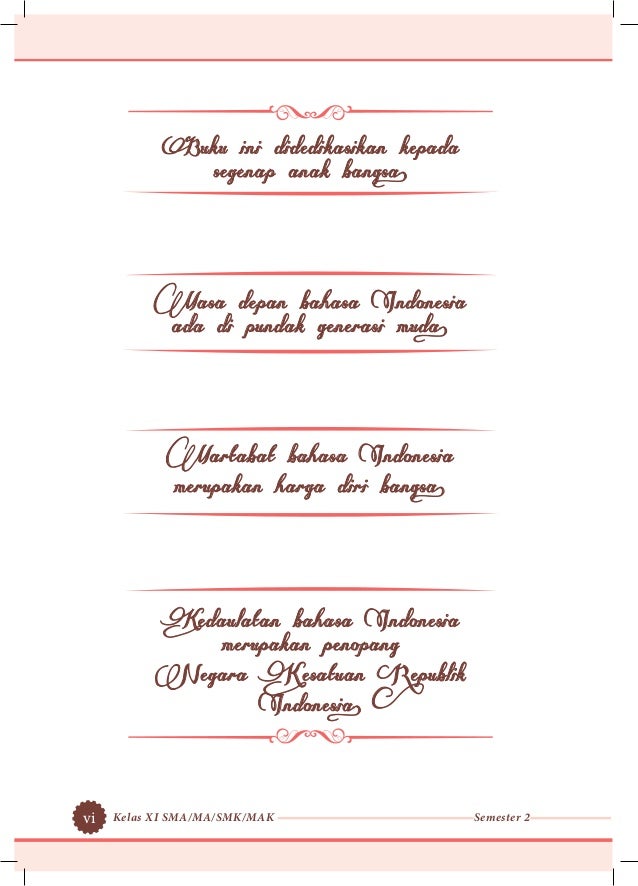 Buku ini didedikasikan kepada
segenap anak bangsa
Masa depan bahasa Indonesia
ada di pundak generasi muda
Martabat bahasa Indonesia
merupakan harga diri bangsa
Kedaulatan bahasa Indonesia
merupakan penopang
Negara Kesatuan Republik
Indonesia
vi Kelas XI SMA/MA/SMK/MAK Semester 2